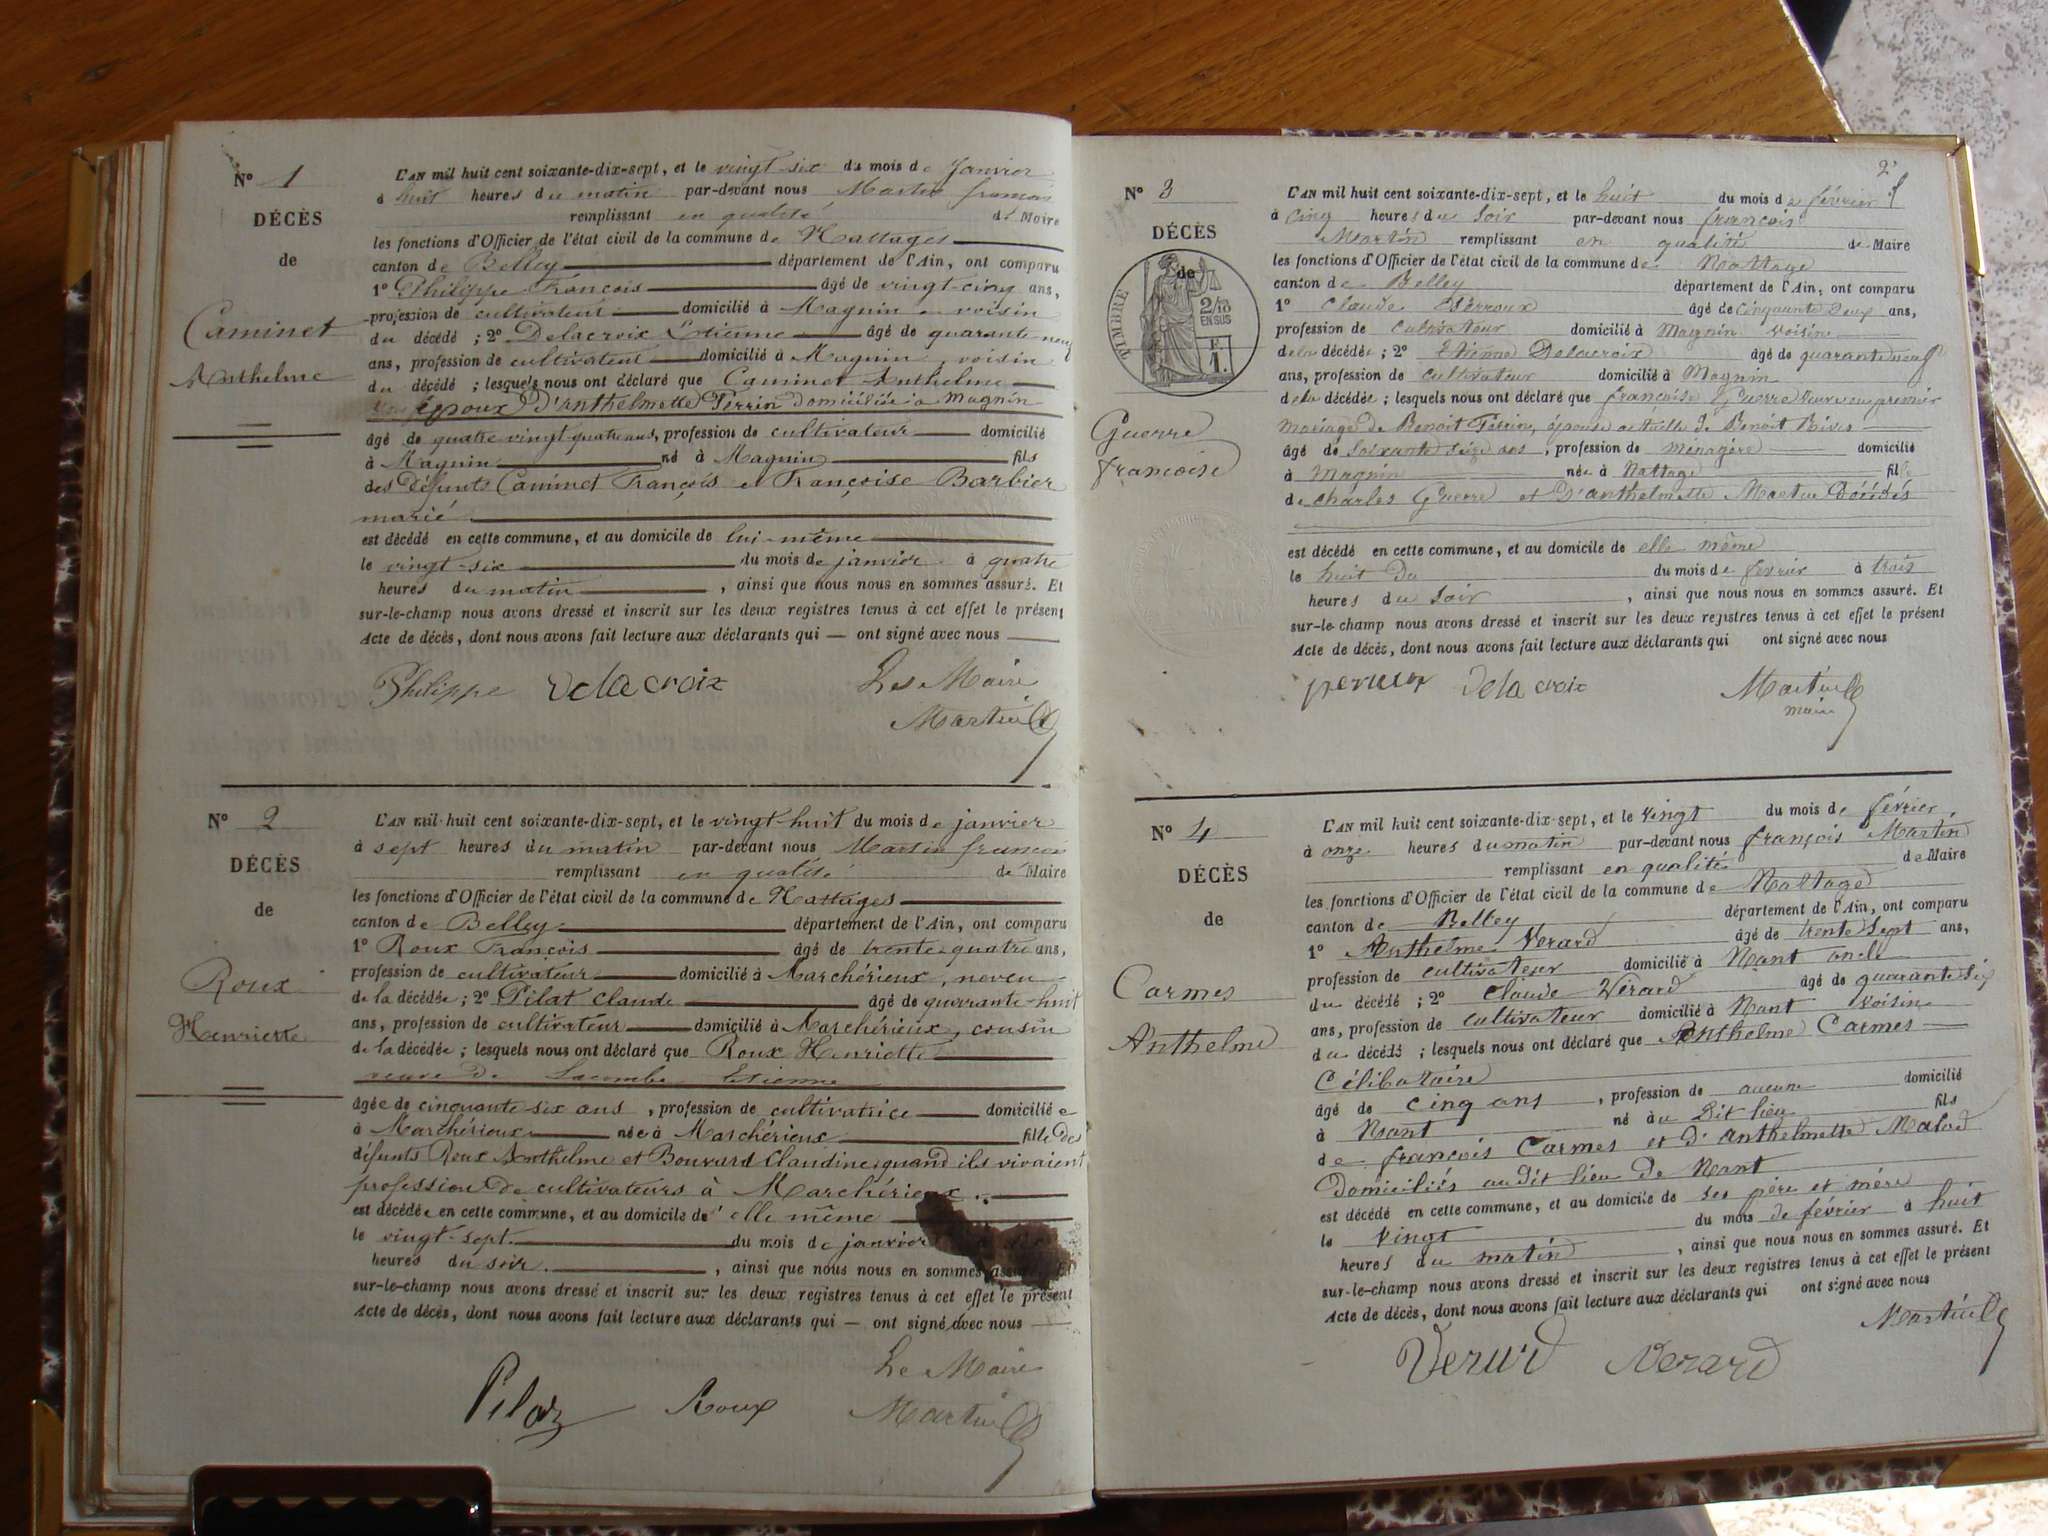 N° 1
DÉCÈS
de
Caminet
Anthelme
L'AN mil huit cent soixante-dix-sept, et le vingt-six du mois de Janvier
à huit heures du matin par-devant nous Martin françois
remplissant en qualité de Maire
les fonctions d'Officier de l'état civil de la commune de Nattages
canton de Belley département de l'Ain, ont comparu
1° Philippe François âgé de vingt-cinq ans,
profession de cultivateur domicilié à Magnin voisin
du décédé ; 2° Delacroix Etienne âgé de quarante-neuf
ans, profession de cultivateur domicilié à Magnin, voisin
du décédé ; lesquels nous ont déclaré que Caminet Anthelme
époux d'anthelmette Perrin domiciliée à Magnin
âgé de quatre vingt quatre ans, profession de cultivateur domicilié
à Magnin né à Magnin fils
des défunts Caminet François et Françoise Barbier
marié
est décédé en cette commune, et au domicile de lui-même
le vingt-six du mois de janvier à quatre
heures du matin, ainsi que nous nous en sommes assuré. Et
sur-le-champ nous avons dressé et inscrit sur les deux registres tenus à cet effet le présent
Acte de décès, dont nous avons fait lecture aux déclarants qui — ont signé avec nous
Philippe Delacroix Le Maire
Martin
N° 2
DÉCÈS
de
Roux
Henriette
L'AN mil huit cent soixante-dix-sept, et le vingt-huit du mois de janvier
à sept heures du matin par-devant nous Martin françois
remplissant en qualité de Maire
les fonctions d'Officier de l'état civil de la commune de Nattages
canton de Belley département de l'Ain, ont comparu
1° Roux François âgé de trente-quatre ans,
profession de cultivateur domicilié à Marchérieux, neveu
de la décédée ; 2° Pilat Claude âgé de quarante-huit
ans, profession de cultivateur domicilié à Marchérieux, cousin
de la décédée ; lesquels nous ont déclaré que Roux Henriette
veuve de Lacombe Etienne
âgée de cinquante six ans, profession de cultivatrice domiciliée
à Marchérieux née à Marchérieux fille des
défunts Roux Anthelme et Bouvard Claudine, quand ils vivaient
profession de cultivateurs à Marchérieux
est décédée en cette commune, et au domicile d'elle même
le vingt-sept du mois de janvier
heures du soir, ainsi que nous nous en sommes assuré. Et
sur-le-champ nous avons dressé et inscrit sur les deux registres tenus à cet effet le présent
Acte de décès, dont nous avons fait lecture aux déclarants qui — ont signé avec nous
Le Maire
Pilaz Roux Martin
2
N° 3
DÉCÈS
de
TIMBRE
2/10
EN SUS
1.
Guerre
francoise
L'AN mil huit cent soixante-dix-sept, et le huit du mois de février
à cinq heures du soir par-devant nous françois
Martin remplissant en qualité de Maire
les fonctions d'Officier de l'état civil de la commune de Nattage
canton de Belley département de l'Ain, ont comparu
1° Claude Perroux âgé de cinquante deux ans,
profession de cultivateur domicilié à Magnin voisin
de la décédée ; 2° Etienne Delacroix âgé de quarante neuf
ans, profession de cultivateur domicilié à Magnin
de la décédée ; lesquels nous ont déclaré que françoise Guerre veuve en premier
mariage de Benoit Perrin, épouse actuelle de Benoit
âgée de soixante seize ans, profession de ménagère domicilié
à Magnin née à Nattage fil
de Charles Guerre et d'anthelmette Martin Décédés
est décédé en cette commune, et au domicile de elle même
le huit du du mois de fevrier à trois
heures du soir, ainsi que nous nous en sommes assuré. Et
sur-le-champ nous avons dressé et inscrit sur les deux registres tenus à cet effet le présent
Acte de décès, dont nous avons fait lecture aux déclarants qui ont signé avec nous
perroux Delacroix Martin
maire
N° 4
DÉCÈS
de
Carmes
Anthelme
L'AN mil huit cent soixante-dix-sept, et le vingt du mois de février
à onze heures du matin par-devant nous françois Martin
remplissant en qualité de Maire
les fonctions d'Officier de l'état civil de la commune de Nattage
canton de Belley département de l'Ain, ont comparu
1° Anthelme Verard âgé de trente sept ans,
profession de cultivateur domicilié à Nant oncle
du décédé ; 2° Claude Vérard âgé de quarante six
ans, profession de cultivateur domicilié à Nant voisin
du décédé ; lesquels nous ont déclaré que Anthelme Carmes
Célibataire
âgé de cinq ans, profession de aucune domicilié
à Nant né au Dit lieu fils
de françois Carmes et d'anthelmette
Domiciliés au dit lieu de Nant
est décédé en cette commune, et au domicile de ses père et mère
le vingt du mois de février à huit
heures du matin, ainsi que nous nous en sommes assuré. Et
sur-le-champ nous avons dressé et inscrit sur les deux registres tenus à cet effet le présent
Acte de décès, dont nous avons fait lecture aux déclarants qui ont signé avec nous
Martin
Verard Verard